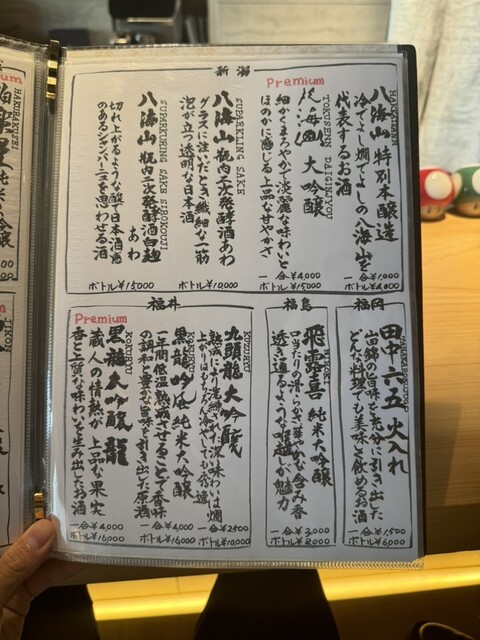 新潟
HAKKAISAN
八海山 特別本醸造
冷でよし燗でよしの八海山を
代表するお酒
一合¥1,000
ボトル¥4,000
Premium
TOKUSENN DAIGINJYOU
大吟醸
細かくまろやかで淡麗な味わいと
ほのかに感じる上品な甘やかさ
一合¥4,000
ボトル¥15,000
SUPARKLING SAKE
八海山 瓶内二次発酵酒あわ
グラスに注いだとき繊細な一筋
泡が立つ透明な日本酒
ボトル¥10,000
SUPARKURING SAKE SIROKOUJI
八海山 瓶内二次発酵酒白麹
あわ
切れ上がるような酸で日本酒感
のあるシャンパーニュを思わせる酒
ボトル¥15000
福岡
田中六五 火入れ
山田錦の旨味を充分に引き出した
どんな料理でも美味しく飲めるお酒
一合¥1,500
ボトル¥6,000
福島
HIROKI
飛露喜 純米大吟醸
口当たりの滑らかさ華やかな含み香
透き通るような喉越しが魅力
一合¥2,000
ボトル¥8,000
福井
KUZURYU
九頭龍 大吟醸
熟成により洗練された深味わいは燗
上がりはもちろん冷やしても秀逸
一合¥2500
ボトル¥10,000
黒龍 吟風 純米大吟醸
一年間低温熟成させることで香味
の調和と豊な旨味を引き出した原酒
一合¥4,000
ボトル¥16000
Premium
KOKURYU
黒龍 大吟醸 龍
蔵人の情熱が上品な果実
香と上質な味わいを生み出したお酒
一合¥4,000
ボトル¥16,000
HAKURAKUSEI